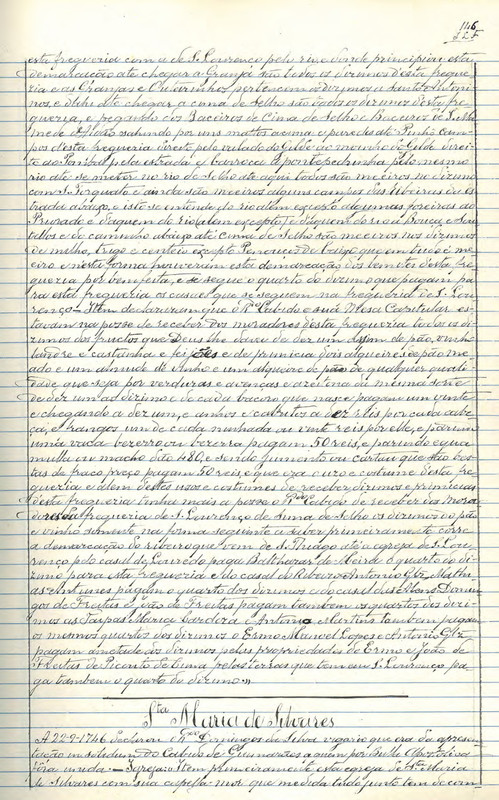 146
esta freguezia com a de S. Lourenço pelo rio donde principiou esta
demarcação até chegar a Granja são todos os dizimos desta fregue-
zia e as Granjas e Outeirinhos pertencem os dizimos a santo Antoni-
nos, e dahi até chegar a cima de Selho são todos os dizimos desta fre-
guezia, e pegando dos Baceiros de Cima de Selho e Baceiros de S.
de S. João sahindo por uns mattos acima e paredes até Penhó Cam-
pos desta freguezia direito pelo valado do Gilde ao moinho do Gilde direi-
to ao pela estrada e barroca á ponte pedrinha pelo mesmo
rio até se meter no rio de Selho até aqui todos são meeiros no dizimo
com S. Torquato e ainda são meeiros alguns campos das Ribeiras da es-
trada abaixo, e isto se entende do rio alem excepto algumas foreiras ao
Priorado e daquem do rio alem excepto, e daquem do rio a Bouça e Sou-
tellos e do caminho abaixo até Cima de Selho são meeiros nos dizimos
de milho, trigo e centeio excepto Penouços de Baixo que em tudo é me-
eiro e nesta forma houveram esta demarcação dos bens desta fre-
guezia por bem feita, e se segue o quarto do dizimo que pagam pa-
ra esta freguezia os casaes que se seguem na freguezia de S. Lou-
renço — Item declararam que o Rdo Cabido e sua Mesa Capitular es-
tavam na posse de receber dos moradores desta freguezia todos os di-
zimos dos fructos que Deus lhe dava de dez um assim de pão, vinho
landre e castanha e feijões e de primicia dois alqueires de pão me-
ado e um almude de vinho e um alqueire de pão de qualquer quali-
dade que seja por verduras e avenças e azeitona da mesma sorte
de dez um ao dizimo e de cada bacoro que nasce pagam um vintem
e chegando a dez um, e anhos e cabritos a dez réis por cada cabe-
ça, e frangos um de cada ninhada ou vinte reis por elle, e parindo
uma vaca bezerro ou bezerra pagam 50 reis, e parindo egua
mulla ou macho são 480, e sendo jumento ou cartau que são bes-
tas de fraco preço pagam 50 reis e que era o uso e costume desta fre-
guezia e alem destes usos e costumes de receber dizimos e primicias
desta freguezia tinha mais a posse o Rdo Cabido de receber dos mora-
dores da freguezia de S. Lourenço de Cima de Selho os dizimos do pão
e vinho somente na forma seguinte a saber primeiramente corre
a demarcação do ribeiro que vem de S. Thiago até a egreja de S. Lou-
renço pelo casal do Louredo paga Balthazar de Meira o quarto do di-
zimo para esta freguezia e do casal do Ribeiro Antonio Glz. Mathi-
as Antunes pagam o quarto dos dizimos e do casal das Domin-
gos de Freitas e João de Freitas pagam tambem os quartos dos dizi-
mos as Maria Cardeira e Antonio Martins tambem pagam
os mesmos quartos dos dizimos o Ermo Manoel Lopes e Antonio Glz.
pagam ametade dos dizimos pelas propriedades do Ermo e João de
Freitas do Picoto de Cima pelas terras que tem em S. Lourenço pa-
ga tambem o quarto do dizimo.»
Sta Maria de Silvares
A 22-9-1746 declarou Rdo Domingos da Silva vigario que era da apresen-
tação in solidum do Cabido de Guimarães a quem por Bulla Apostolica
fôra unida. — Igreja: Item primeiramente esta egreja de Sta Maria
de Silvares com sua capella mor que medida tudo junto tem de com-